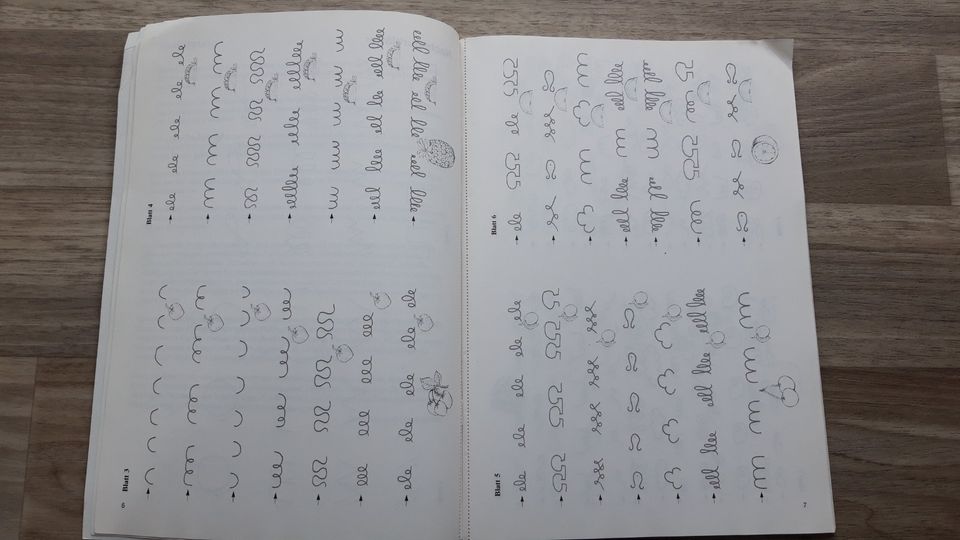 Blatt 3
Blatt 4
6
Blatt 5
Blatt 6
7